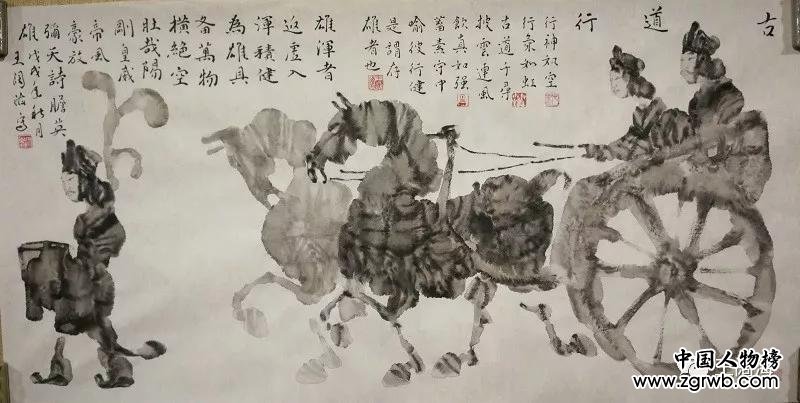 古道行
行神如空
行氣如虹
古道千尋
披雲連風
飲真如强
蓄素守中
喻彼行健
是謂存
雄者也
雄渾者
返虛入
渾積健
為雄具
备萬物
橫絕空
壯哉陽
剛皇威
帝風
豪放
彌天詩膽英
雄戊戌年秋月
王阔海寫
中国人物榜
www.zgrwb.com